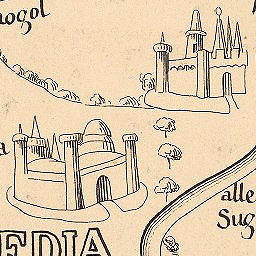 nogol
a
alle
Sug
EDIA